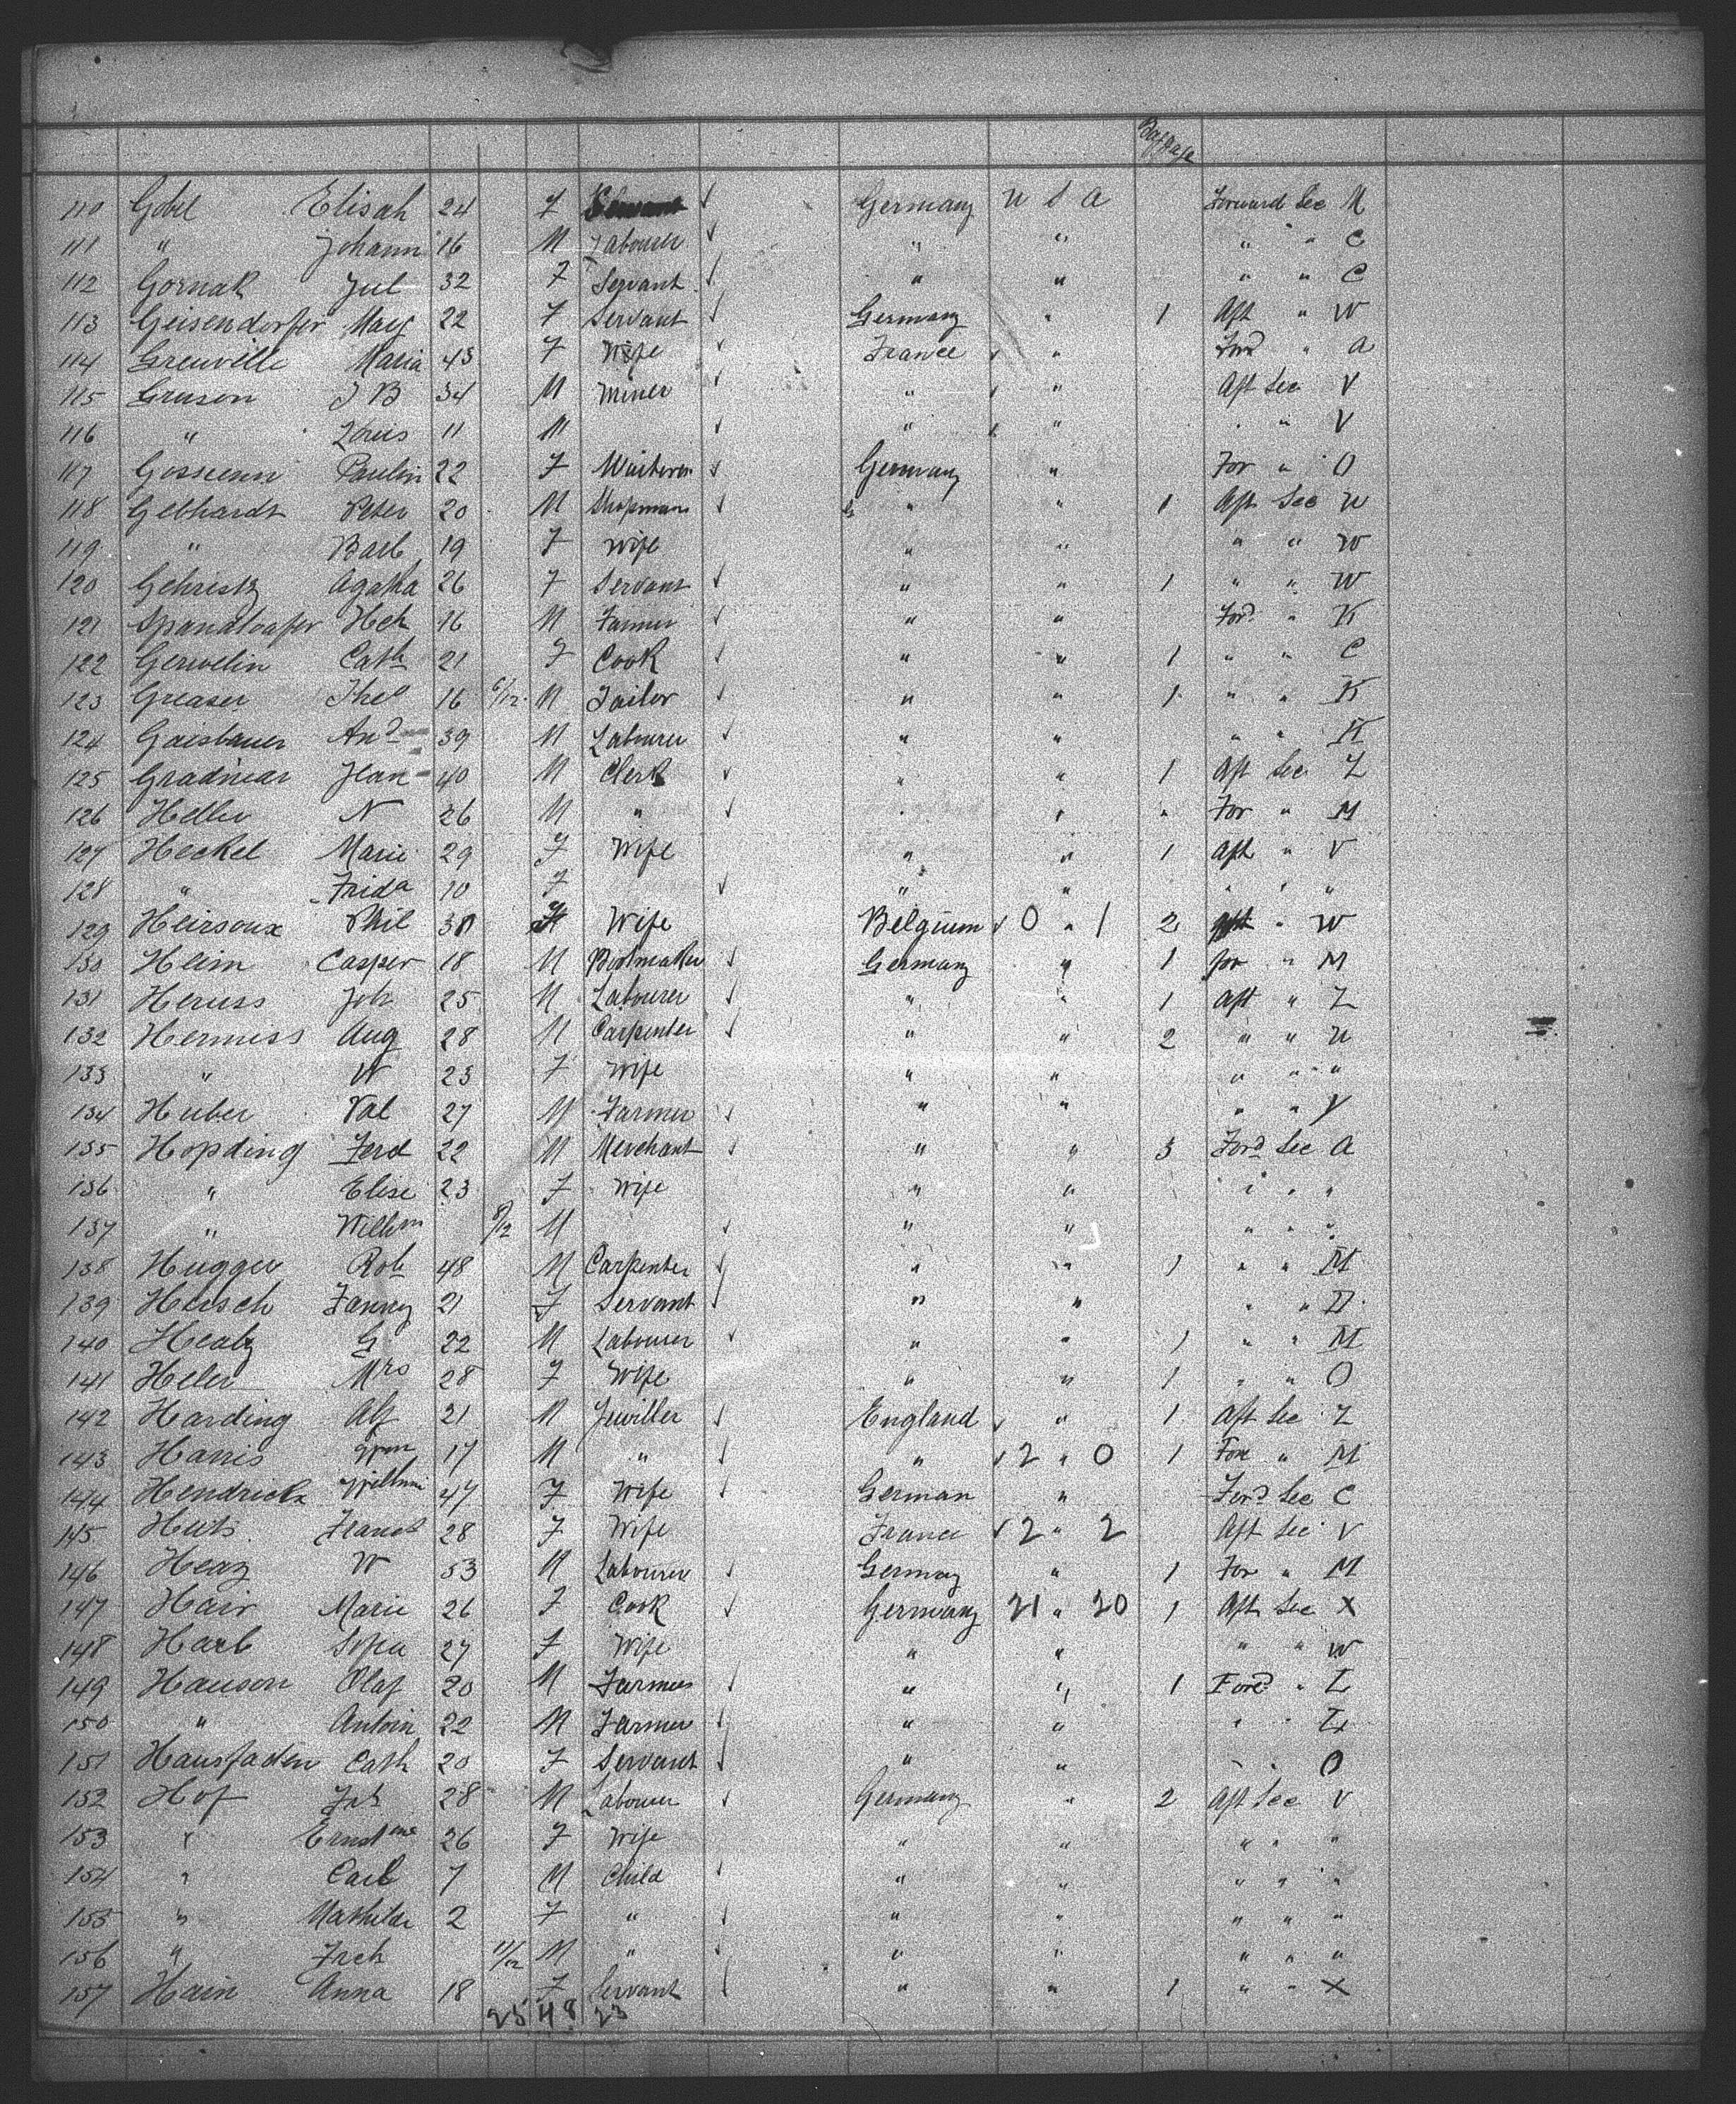 Baggage
110 Gobel Elisah 24 F ✓ Germany U S A Forward Sec M
111 " Johann 16 M Labourer ✓ " " " " C
112 Gornak Jul 32 F Servant ✓ " " " " C
113 Geisendorfer Marg 22 F Servant ✓ Germany " 1 Aft " W
114 Greuville Maria 43 F Wife ✓ France ✓ " Ford " A
115 Gruson J B 34 M Miner ✓ " ✓ " Aft Sec V
116 " Louis 11 M ✓ " " " " V
117 Paulin 22 F ✓ Germany " For " O
118 Gebhardt Peter 20 M Shopman ✓ " " 1 Aft Sec U
119 " Barb 19 F Wife " " " " W
120 Gehristz Agatha 26 F Servant ✓ " " 1 " " W
121 Hch 16 M Farmer ✓ " " Ford " K
122 Gerwelin Cath 21 F Cook ✓ " " 1 " " C
123 Greaser 16 6/12 M Tailor ✓ " " 1 " " K
124 Gaisbauer And 39 M Labourer ✓ " " " " K
125 Gradniar 40 M Clerk ✓ " " 1 Aft Sec Z
126 Heller N 26 M " ✓ " " " For " M
127 Heckel Marie 29 F Wife " " 1 Aft " V
128 " Frida 10 F ✓ " " " " "
129 Heirsoux Phil F Wife Belgium ✓ 0 " 1 2 Aft " W
130 Heim Casper 18 M Bootmaker ✓ Germany " 1 for " M
131 Heruss Joh 25 M Labourer ✓ " " 1 Aft " Z
132 Hermiss Aug 28 M Carpenter ✓ " " 2 " " U
133 " W 23 F Wife " " " " "
134 Huber Val 27 M Farmer ✓ " " " " V
135 Hopding Ferd 22 M Merchant ✓ " " 3 Ford Sec A
136 " Elise 23 F Wife " " " " "
137 " Willm 8/12 M ✓ " " " " "
138 Hugger Rob 48 M Carpenter ✓ " " 1 " " M
139 Hirsch Fanny 21 F Servant ✓ " " " "
140 Healy G 22 M Labourer ✓ " " 1 " " M
141 Heler Mrs 28 F Wife " " 1 " " O
142 Harding Alf 21 M Jewiller ✓ England ✓ " 1 Aft Sec Z
143 Harris 17 M " ✓ " ✓ 2 " 0 1 Fore " M
144 Hendricks 47 F Wife ✓ German " Ford Sec C
145 28 F Wife France ✓ 2 " 2 Aft Sec V
146 Heaz W 53 M Labourer ✓ Germany " 1 For " M
147 Hair Marie 26 F Cook ✓ Germany 21 " 20 1 Aft Sec X
148 Harb Sofia 27 F Wife " " " " W
149 Hauson Olaf 20 M Farmer ✓ " " 1 Ford " L
150 " Antoin 22 M Farmer ✓ " " " " L
151 Hausfaden Cath 20 F Servant ✓ " " " " O
152 Hof 28 M Labourer ✓ Germany " 2 Aft Sec V
153 " Ernstine 26 F Wife " " " " "
154 " Carl 7 M Child ✓ " " " " "
155 " Mathilde 2 F " ✓ " " " " "
156 " Frch 11/12 M " ✓ " " " " "
157 Hain Anna 18 F Servant ✓ " " 1 " " X
25 48 23